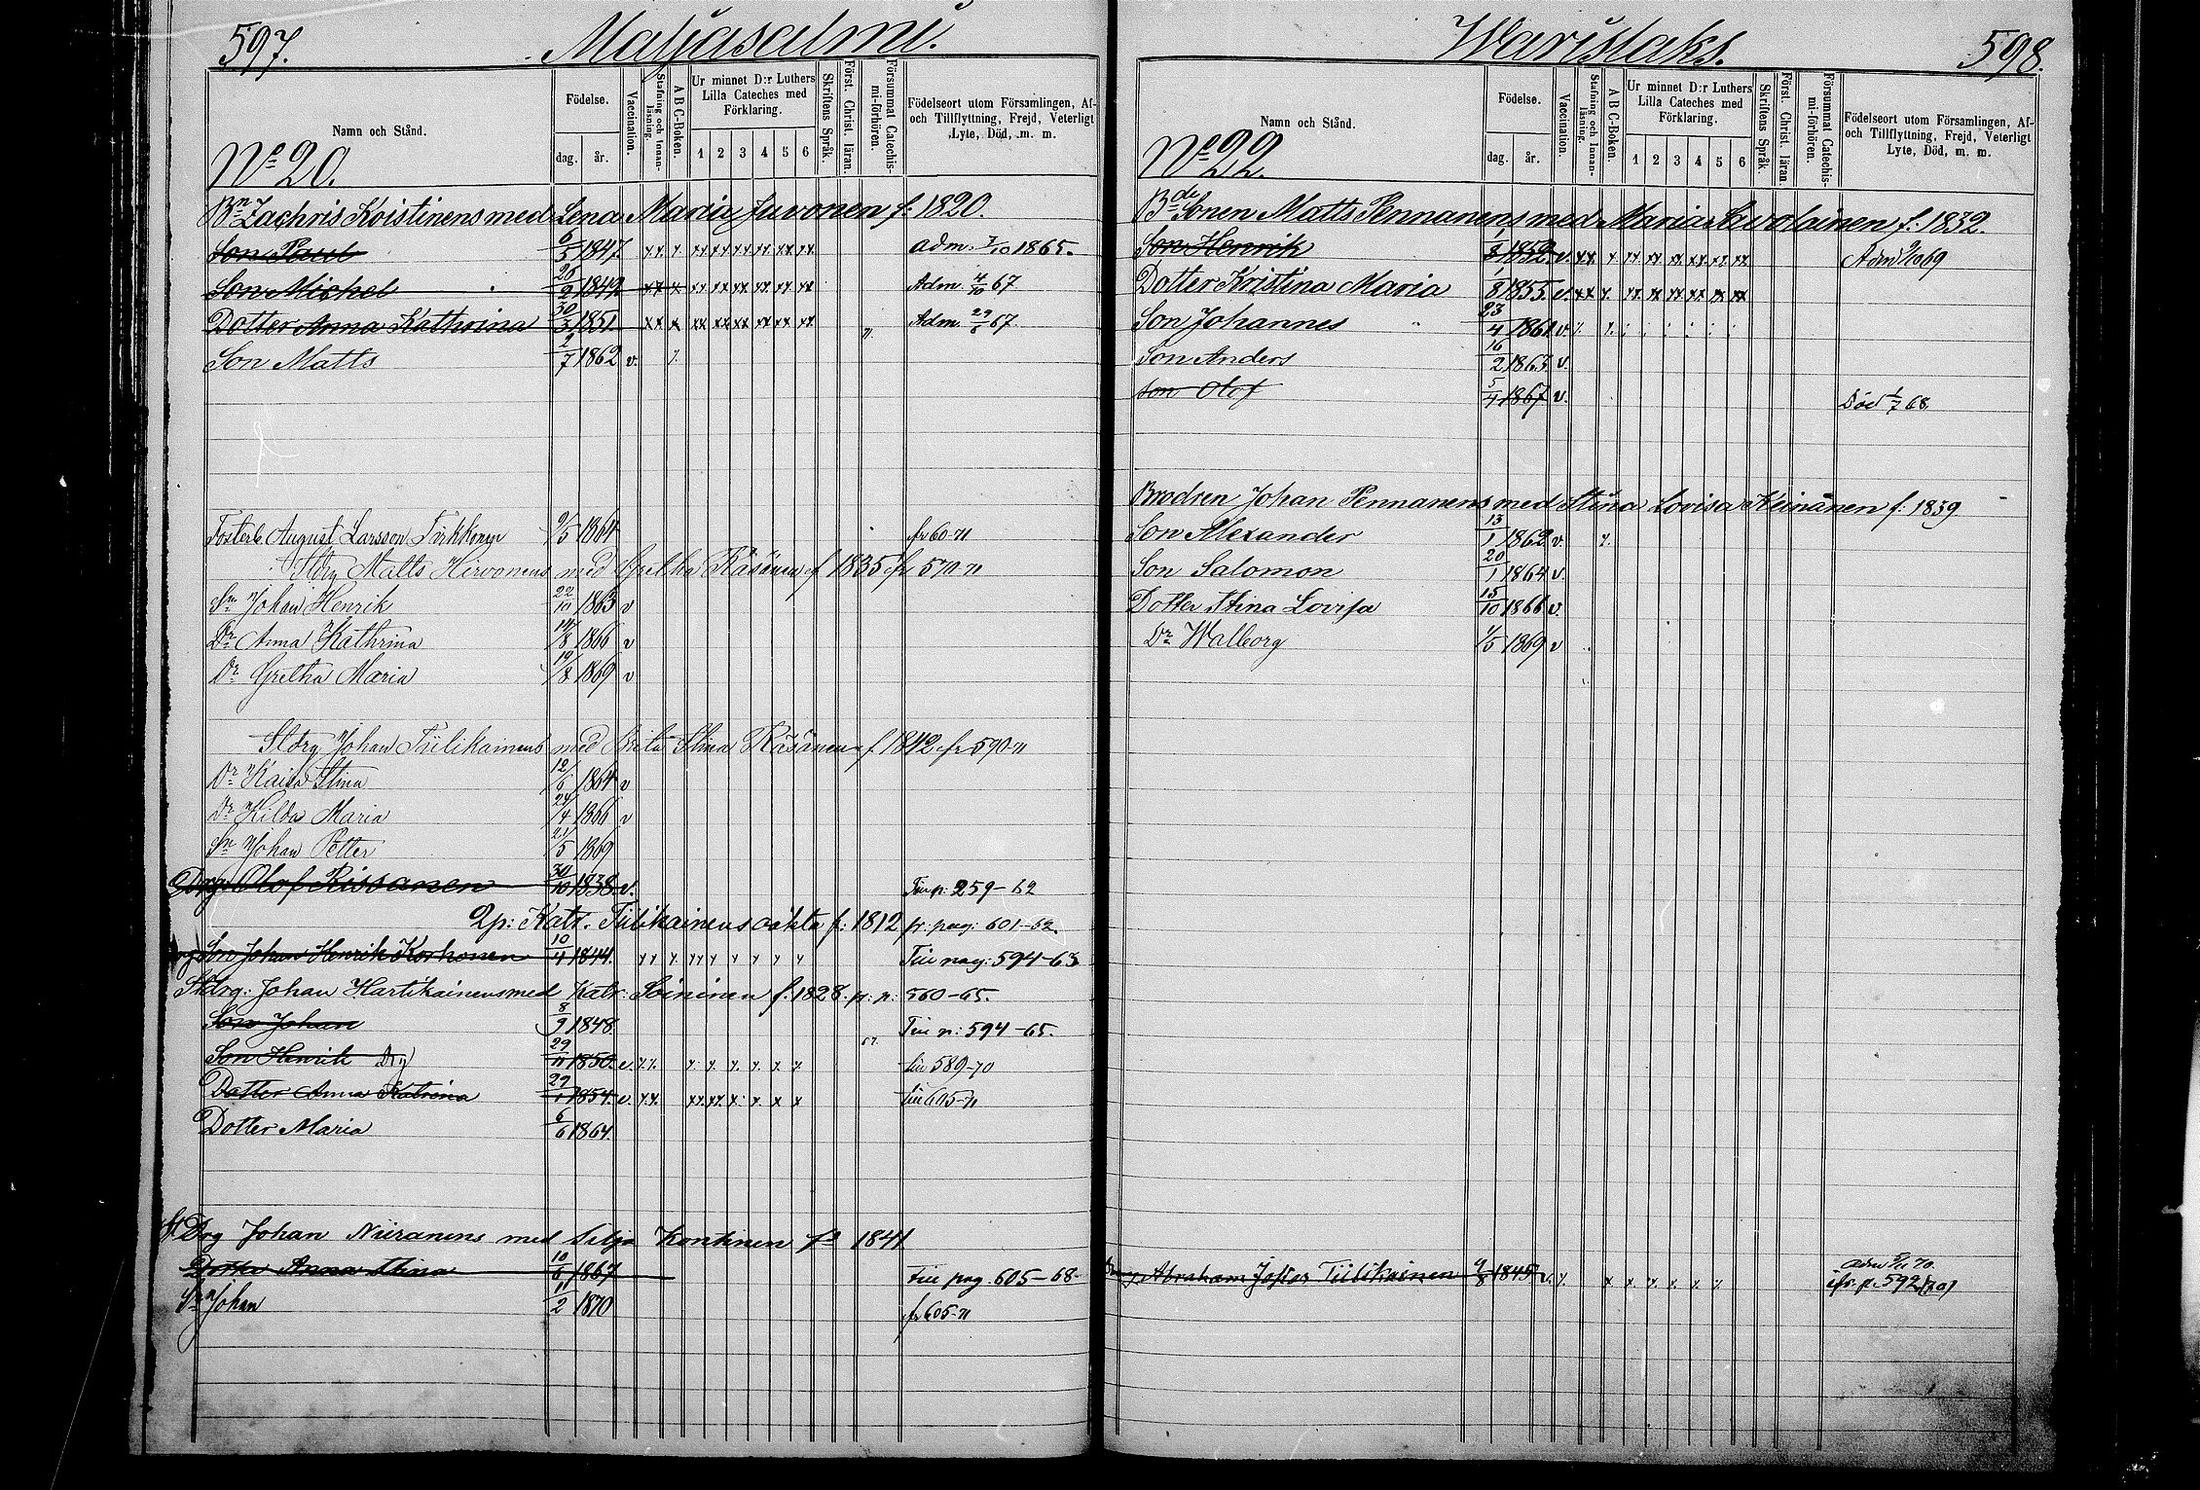 597.
Maljasalmi.
Namn och Stånd.
Födelse.
dag.
år.
Vaccination.
Stafning och Innan-läsning.
A B C-Boken.
Ur minnet D:r Luthers
Lilla Cateches med
Förklaring.
1 2 3 4 5 6
Skriftens Språk.
Först. Christ. läran.
Försummat Catechis-mi-förhören.
Födelseort utom Församlingen, Af-
och Tillflyttning, Frejd, Veterligt
Lyte, Död, m. m.
No 20.
Bn Zachris Koistinens med Lena Maria Juvonen f: 1820.
Son Paul 6/3 1847. Adm. 7/10 1865.
Son Michel 26/2 1849 Adm. 4/10 67
Dotter Anna Kathrina 30/3 1851 Adm. 29/6 67.
Son Matts 2/7 1862 v.
Fosterb. August Larsson Tirkkonen 9/5 1864 fr 60-71
Stdrg Matts Hirvonens med Gretha Räsänen f 1835 fr 570-71
Sn Johan Henrik 22/10 1863 v
Dr Anna Kathrina 14/8 1866 v
Dr Gretha Maria 19/8 1869 v
Stdrg Johan Tiilikainens med Brita Stina Räsänen f 1842 fr 590-71
Dr Kaisa Stina 12/6 1864 v
Dr Hilda Maria 24/4 1866 v
Sn Johan Petter 21/5 1869
Drg Olof Rissanen 30/10 1838. v. Tie p: 259-62
2p: Katr. Tiilikainens äkta f: 1812 fr. pag: 601-62.
Son Johan Henrik Korhonen 10/4 1844. Tie pag: 594-63
Stdrg: Johan Hartikainens med Katr: Soininen f. 1828. fr: p: 560-65.
Son Johan 8/9 1848 Tie p: 594-65.
Son Henrik Drg 29/11 1850. v. tie 589-70
Dotter Anna Katrina 29/1 1854. v. tie 605-71
Dotter Maria 6/6 1864.
St Drg Johan Niiranens med Silja Kontinen f. 1841
Dotter Anna Stina 10/6 1867 Tie pag. 605-68-
Sn Johan 11/2 1870 fr 605-71
Waristaks.
598.
Namn och Stånd.
Födelse.
dag.
år.
Vaccination.
Stafning och Innan-läsning.
A B C-Boken.
Ur minnet D:r Luthers
Lilla Cateches med
Förklaring.
1 2 3 4 5 6
Skriftens Språk.
Först. Christ. läran.
Försummat Catechis-mi-förhören.
Födelseort utom Församlingen, Af-
och Tillflyttning, Frejd, Veterligt
Lyte, Död, m. m.
No 22.
Bde Sonen Matts Pennanens med Maria Savolainen f: 1832.
Son Henrik 1/8 1852. v.
Dotter Kristina Maria 1/8 1855. v.
Son Johannes 23/4 1861. v.
Son Anders 16/2 1863. v.
Son Olof 5/4 1867 v. Död 1/7 68.
Brodren Johan Pennanens med Stina Lovisa Keinänen f: 1839
Son Alexander 13/1 1862 v.
Son Salomon 20/1 1864 v.
Dotter Stina Lovisa 15/10 1866 v.
Dr Walborg 1/5 1869 v
Abraham Josias Tiilikainen 9/8 1845 v.
ifr. p. 592 (70)